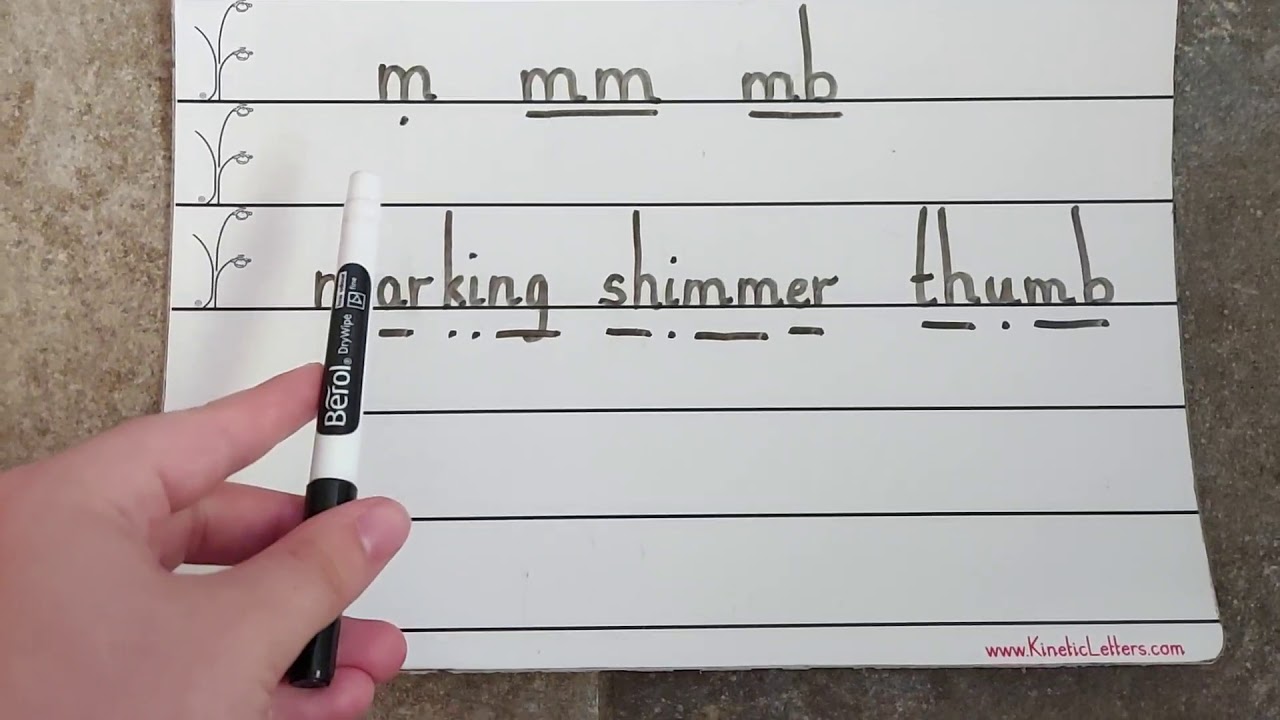 m mm mb
marking shimmer thumb
Berol DryWipe fine
www.KineticLetters.com